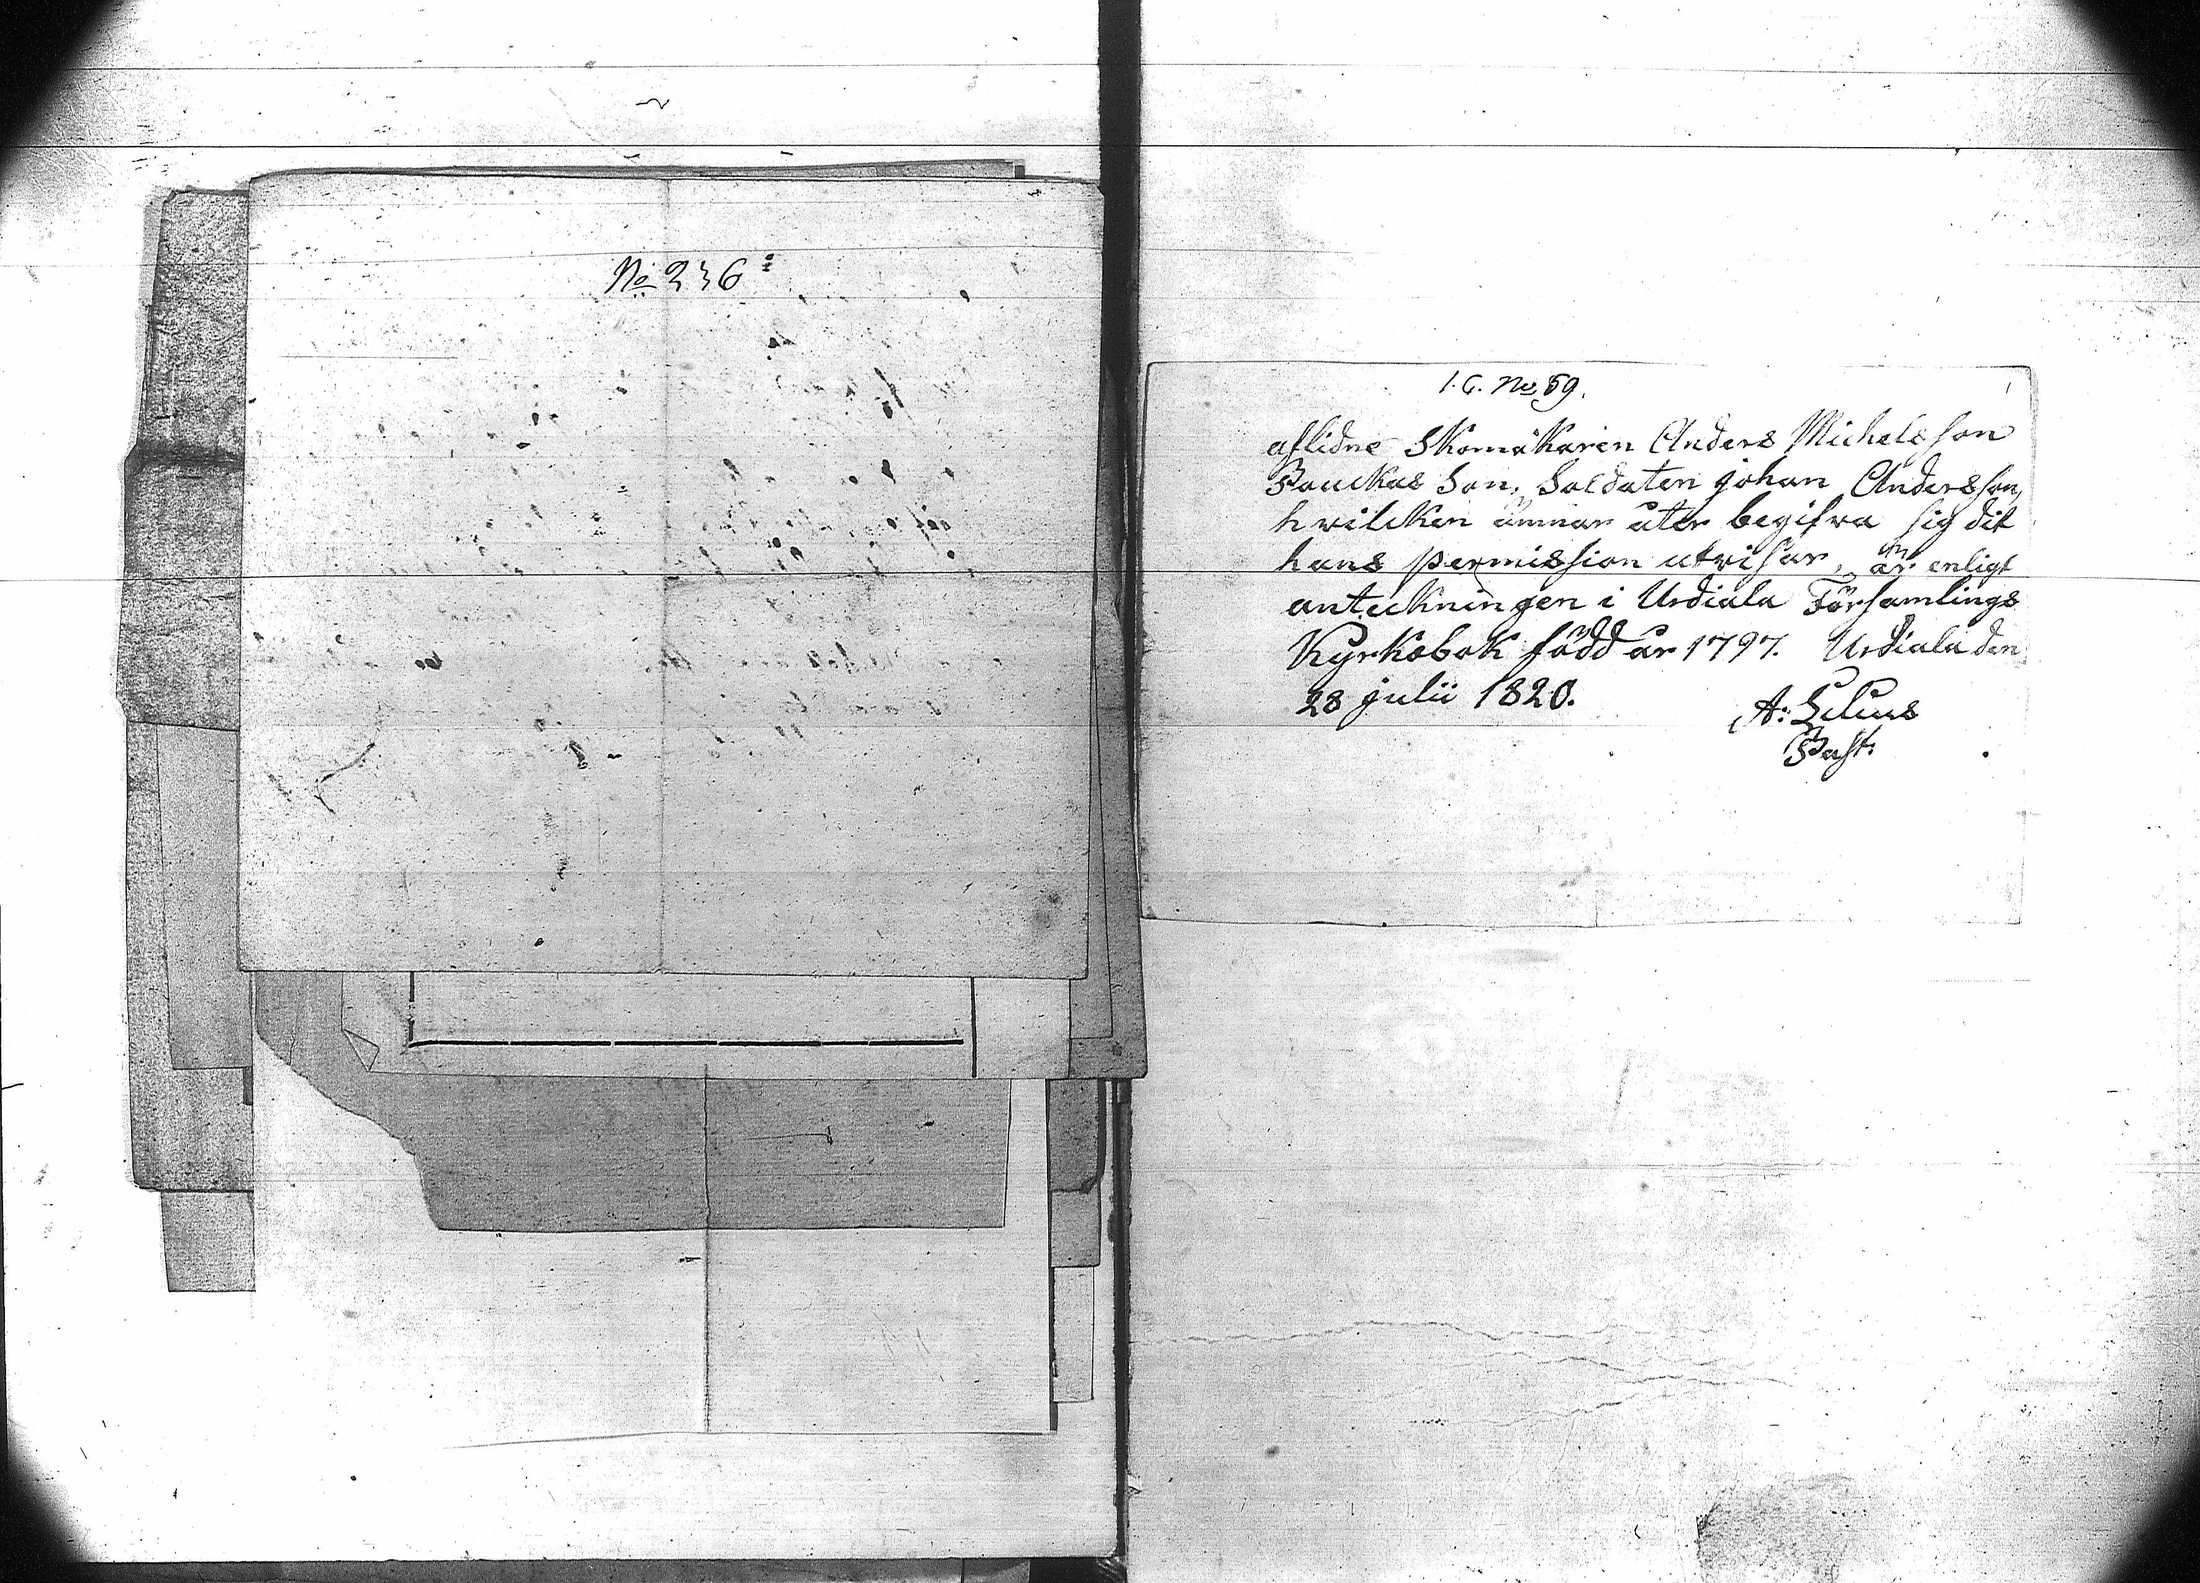 No 236
I. C. No 59.
aflidne Skomakaren Anders Michelsson
Pauckas Son, Soldaten Johan Andersson,
hvilcken ämnar åter begifva sig dit
hans permission utvisar, är enligt
anteckningen i Urdiala Församlings
Kyrkobok född år 1797. Urdiala den
28 Julii 1820.
A: Lilius
Past: